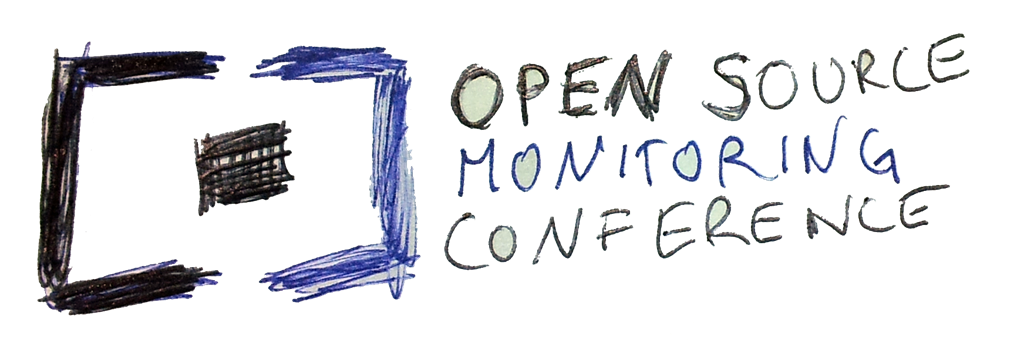 OPEN SOURCE
MONITORING
CONFERENCE